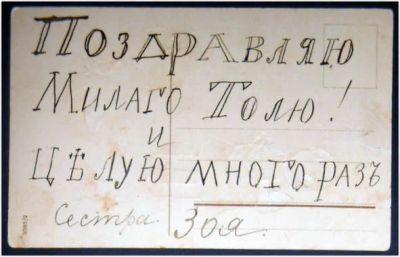 Поздравляю
Милаго Толю!
и
Цѣлую много разъ
Сестра Зоя.